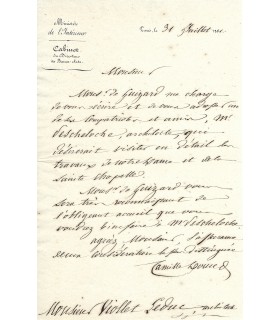 Ministère
de l'Intérieur
Cabinet
du Directeur
des Beaux-Arts
Paris, le 31 Juillet
Monsieur
Mons. de Guizard me charge
de vous écrire et de vous adresser un
de ses compatriotes et amis, Mr
architecte, qui
désirerait visiter en détail les
travaux de notre Dame et de la
Sainte Chapelle.
Mons. de Guizard vous
sera très reconnaissant de
l'obligeant accueil que vous
voudrez bien faire à Mr
agréez, Monsieur, l'assurance
de ma considération la plus distinguée
Camille
Monsieur Viollet Leduc